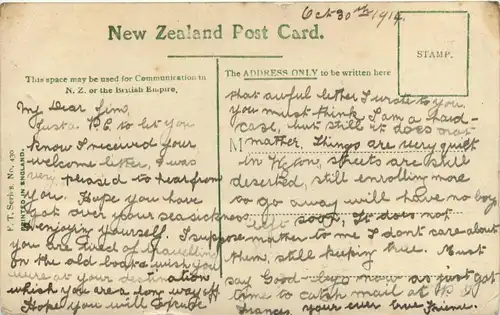 Oct 30th 1914.
New Zealand Post Card.
STAMP.
This space may be used for Communication in
N. Z. or the British Empire.
The ADDRESS ONLY to be written here
F. T. Series. No. 430
PRINTED IN ENGLAND.
My Dear Jim,
Just a P.C. to let you
know I received your
welcome letter, I was
very pleased to hear from
you. Hope you have
got over your seasickness
& enjoying yourself. I suppose
you are tired of travelling
on the old boat & wish you
were at your destination
which you are a long way off
Hope you will excuse
that awful letter I wrote to you
you must think I am a hard-
case, but still it does not
M matter. Things are very quiet
in streets are still
deserted, still enrolling more
to go away will have no boys
left soon, It does not
matter to me I don't care about
them, still keeping true. Must
say Good-bye now as just got
time to catch mail at P.N.
your ever true